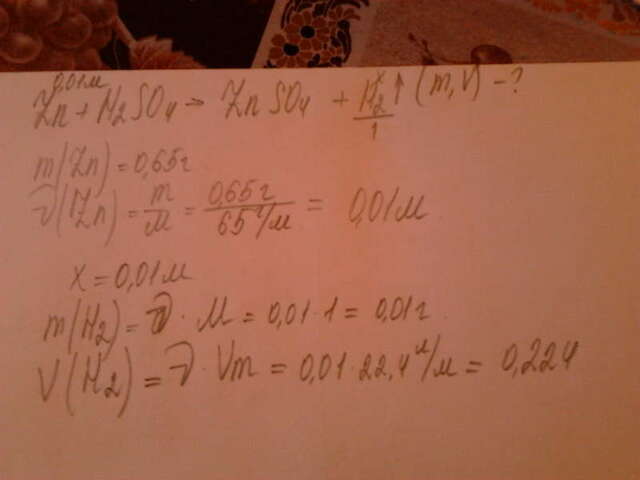 0,01м x
Zn + H2SO4 → ZnSO4 + H2↑ (m, V) - ?
1
m(Zn) = 0,65г
ν(Zn) = m/M = 0,65г/65г/м = 0,01м
x = 0,01м
m(H2) = ν · M = 0,01 · 1 = 0,01г
V(H2) = ν · Vm = 0,01 · 22,4л/м = 0,224